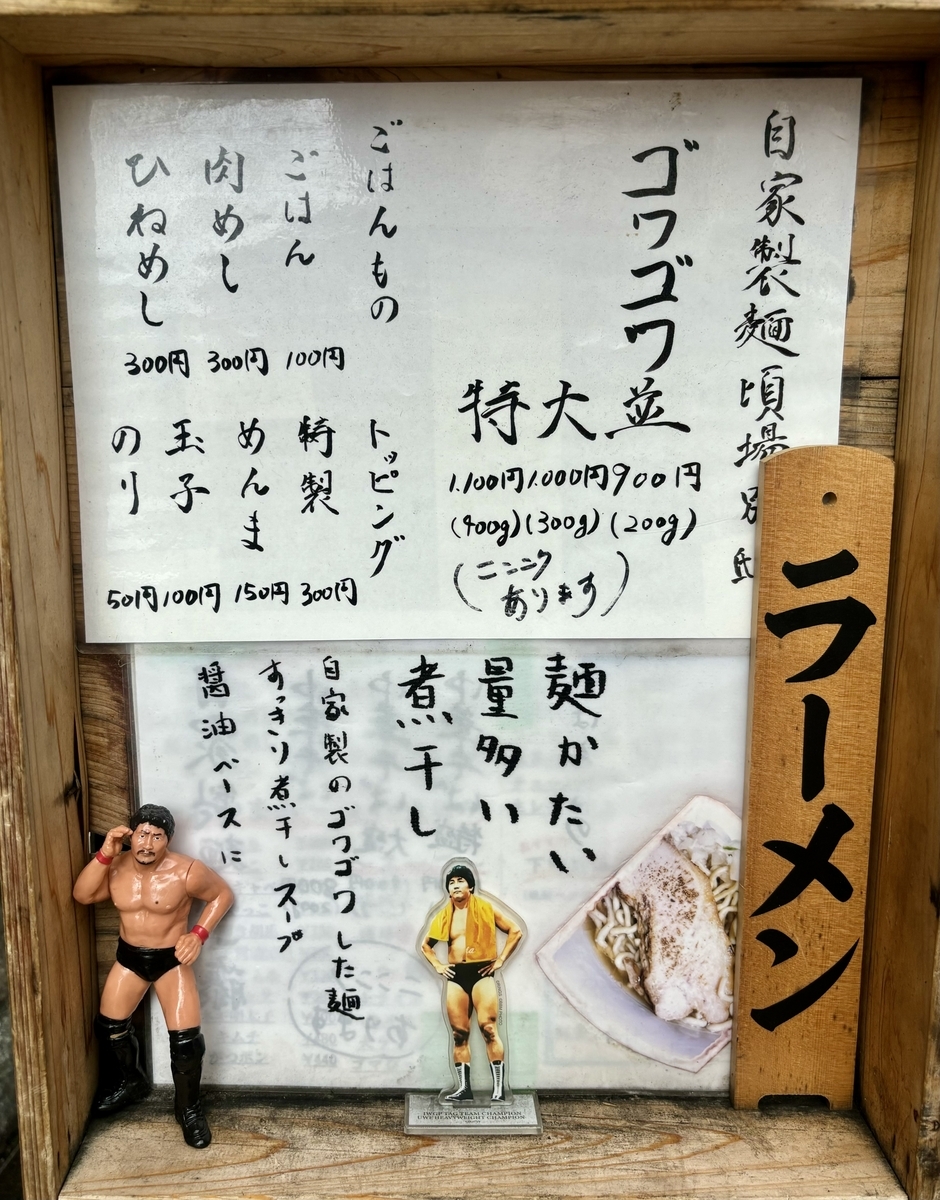 自家製麺 頃場
ゴワゴワ
並 900円 (200g)
大 1.000円 (300g)
特 1.100円 (400g)
(ニンニク
あります)
ごはんもの
ごはん 100円
肉めし 300円
ひねめし 300円
トッピング
特製 300円
めんま 150円
玉子 100円
のり 50円
ラーメン
麺かたい
量多い
煮干し
自家製のゴワゴワした麺
すっきり煮干しスープ
醤油ベースに
IWGP TAG TEAM CHAMPION
UWF HEAVYWEIGHT CHAMPION